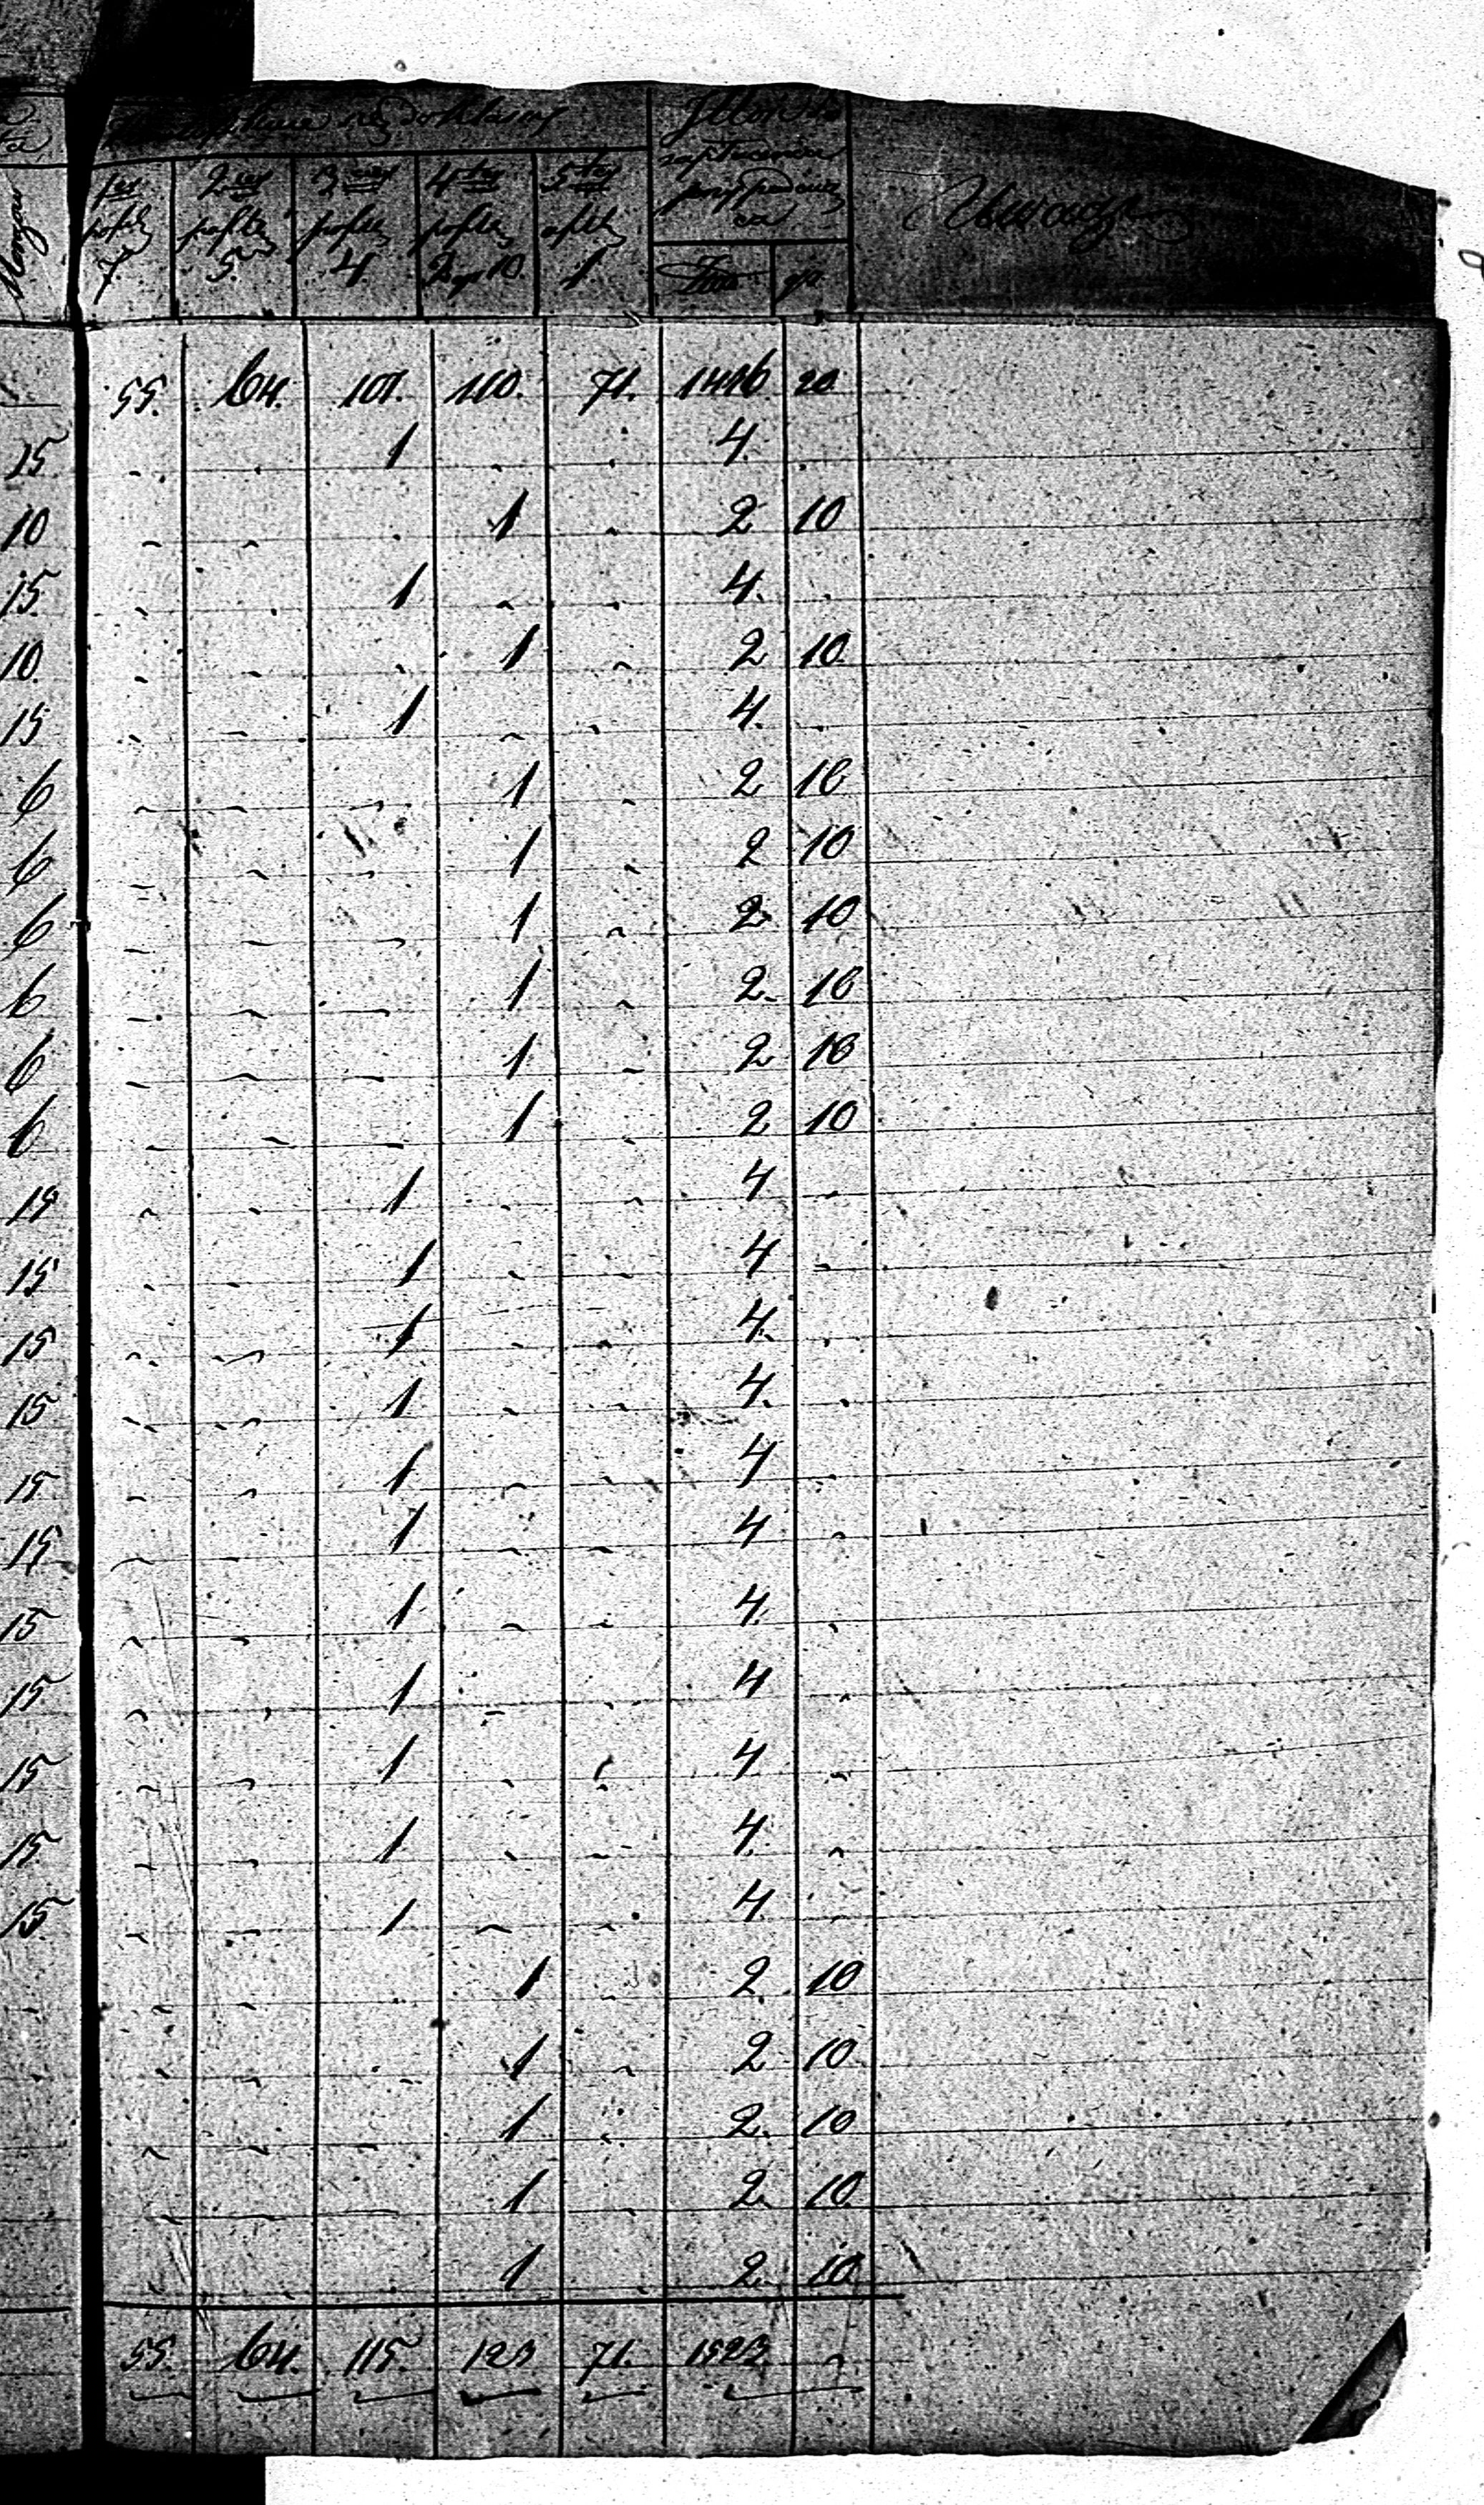 się do klassy
1szej 2giej 3ciej 4tej 5tej
7 5 4 2 gr 10 1
Złote gr
55. 64. 101. 110. 71. 1436 20
15 1 4.
10 1 2 10
15 1 4.
10 1 2 10
15 1 4.
6 1 2 10
6 1 2 10
6 1 2 10
6 1 2 10
6 1 2 10
6 1 2 10
15 1 4
15 1 4
15 1 4.
15 1 4.
15 1 4
15 1 4
15 1 4.
15 1 4
15 1 4.
15 1 4.
15 1 4.
1 2. 10
1 2 10
1 2. 10
1 2. 10
1 2. 10
55. 64. 115. 123 71. 1523